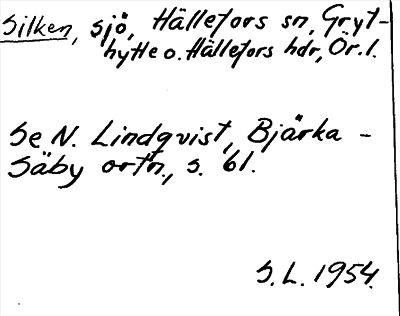 Silken, sjö, Hällefors sn, Gryt-
hytte o. Hällefors hdr, Ör. l.
Se N. Lindqvist, Bjärka -
Säby ortn., s. 61.
S.L. 1954.